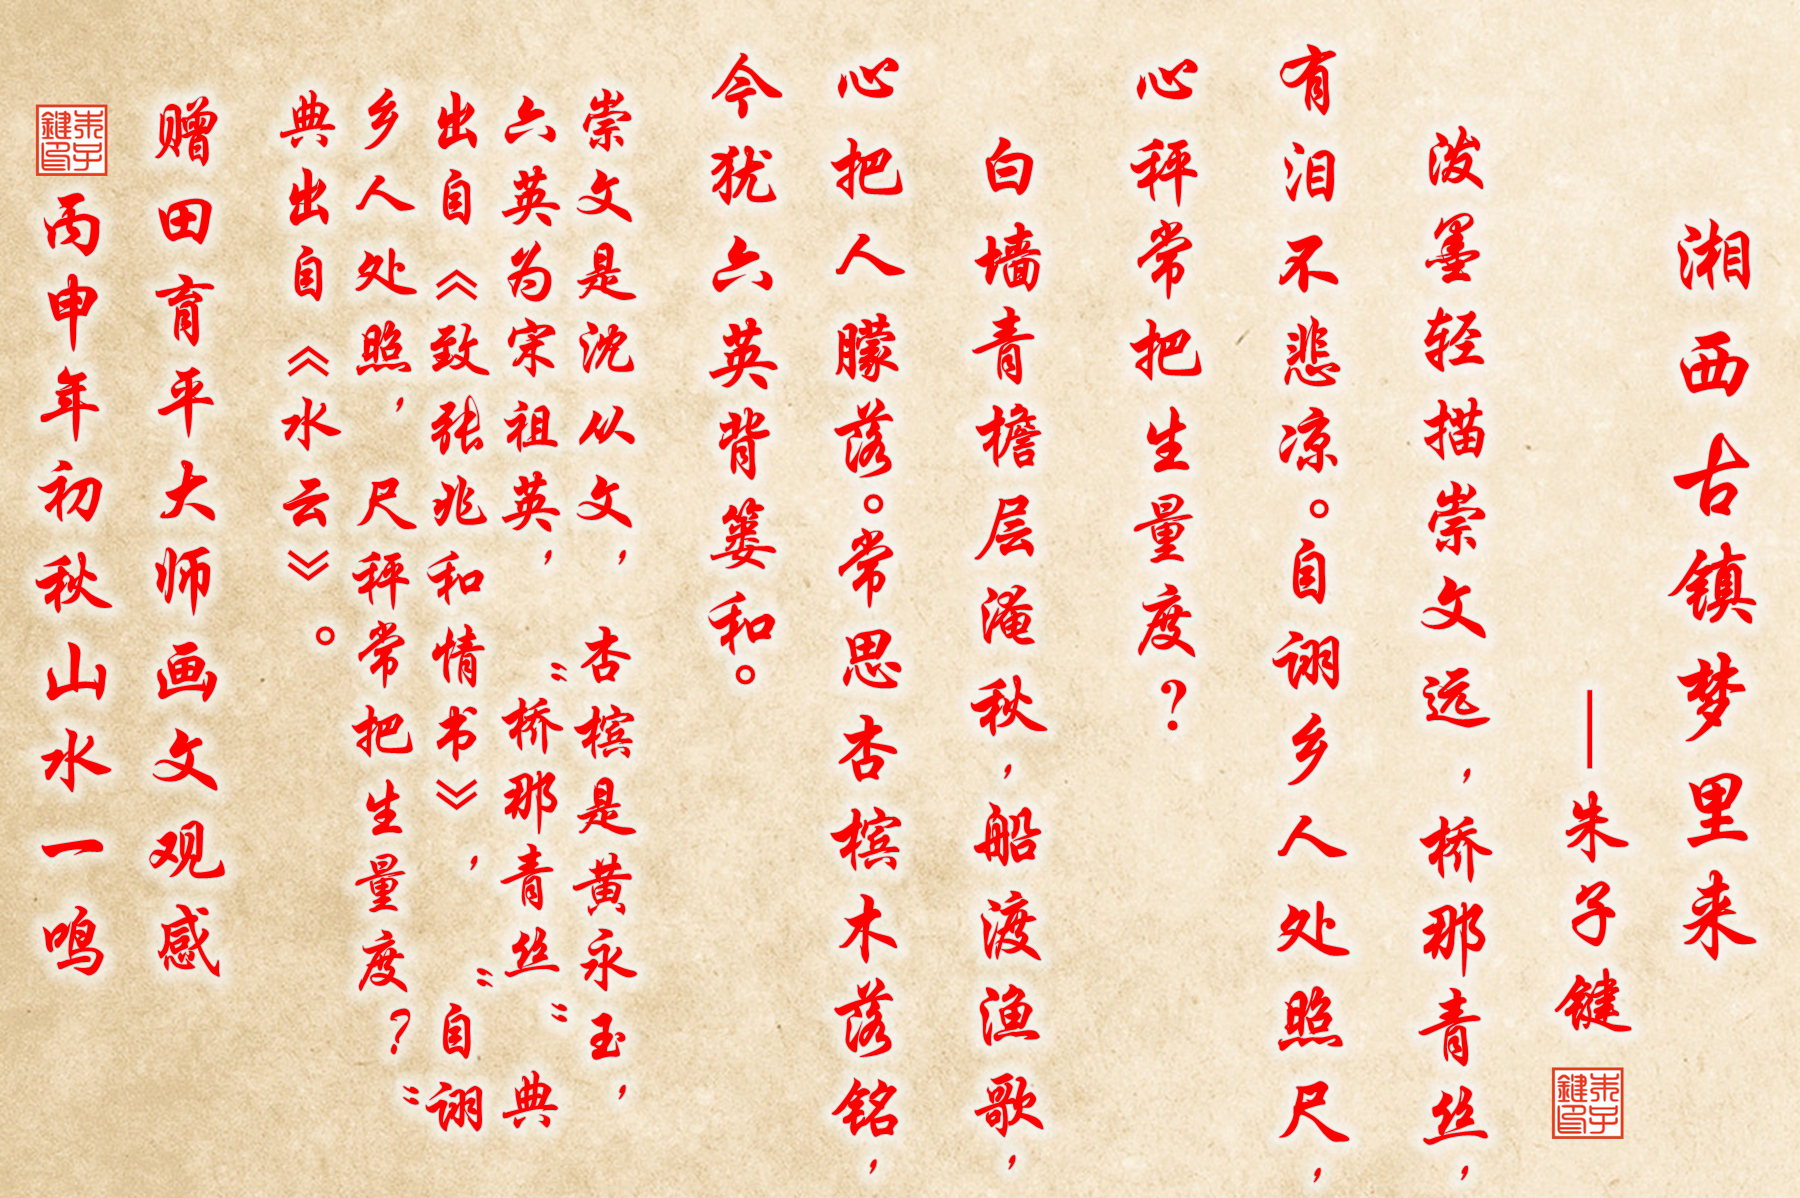 湘西古镇梦里来
——朱子键
朱子鍵印
泼墨轻描崇文远，桥那青丝，
有泪不悲凉。自诩乡人处照尺，
心秤常把生量度？
白墙青檐层淹秋，船渡渔歌，
心把人朦落。常思杏槟木落铭，
今犹六英背篓和。
崇文是沈从文，杏槟是黄永玉，
六英为宋祖英，“桥那青丝”典
出自《致张兆和情书》，“自诩
乡人处照，尺秤常把生量度？”
典出自《水云》。
赠田育平大师画文观感
朱子鍵印
丙申年初秋山水一鸣